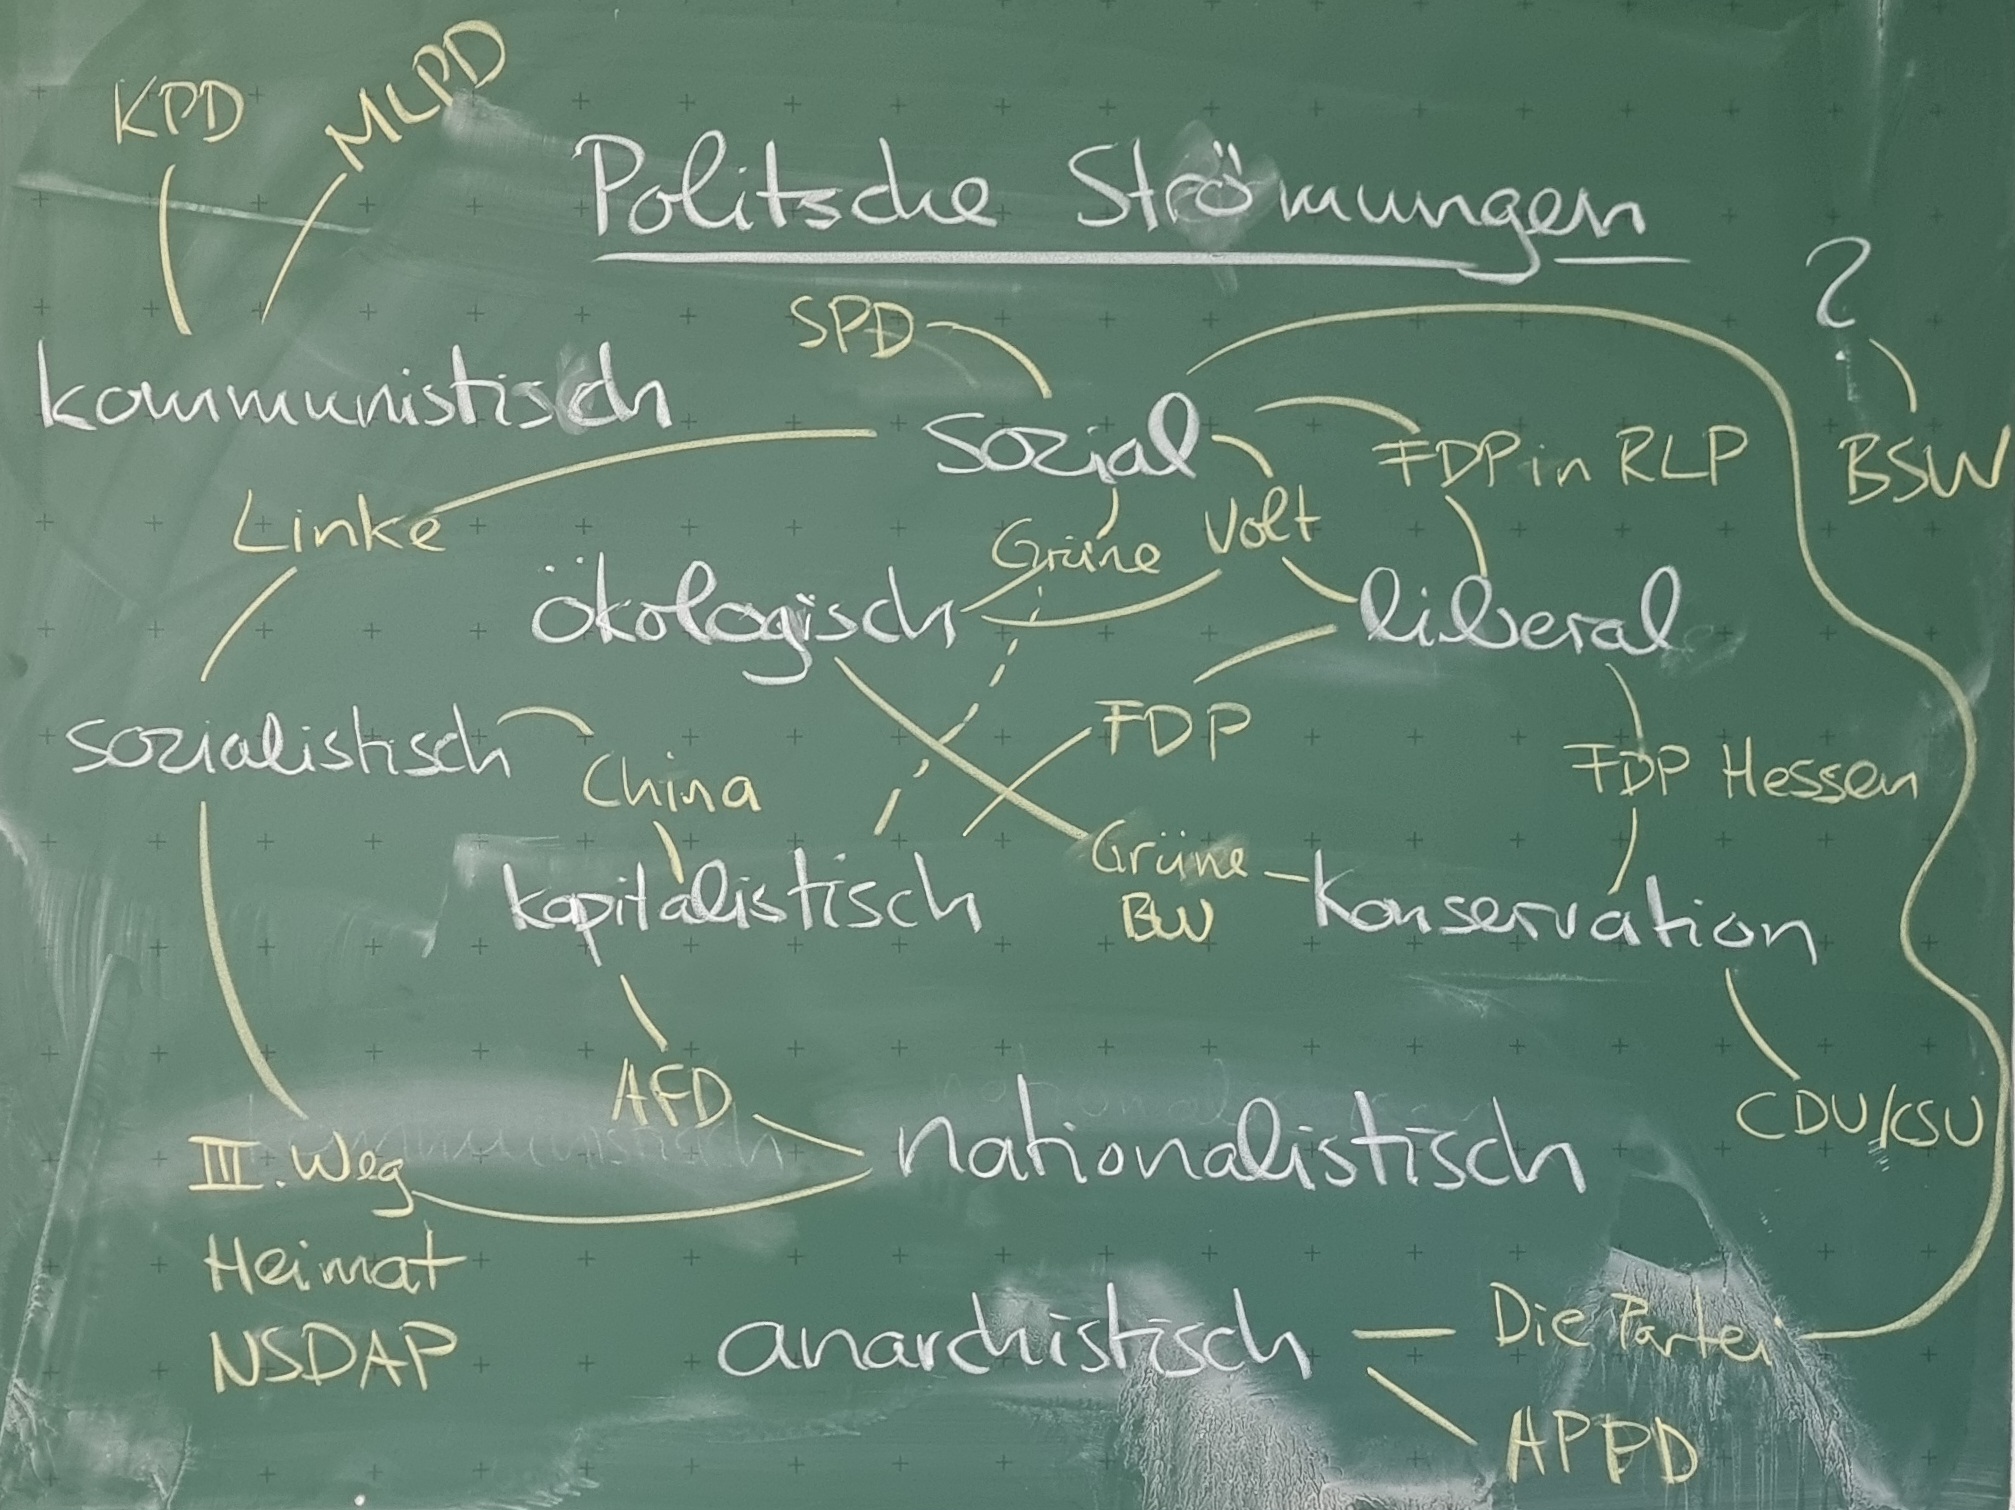 KPD
MLPD
Politsche Strömungen
?
SPD
kommunistisch
sozial
FDP in RLP
BSW
Linke
Grüne
Volt
ökologisch
liberal
sozialistisch
China
FDP
FDP Hessen
kapitalistisch
Grüne
BW
Konservation
AFD
CDU/CSU
III. Weg
nationalistisch
Heimat
NSDAP
anarchistisch
Die Partei
APPD